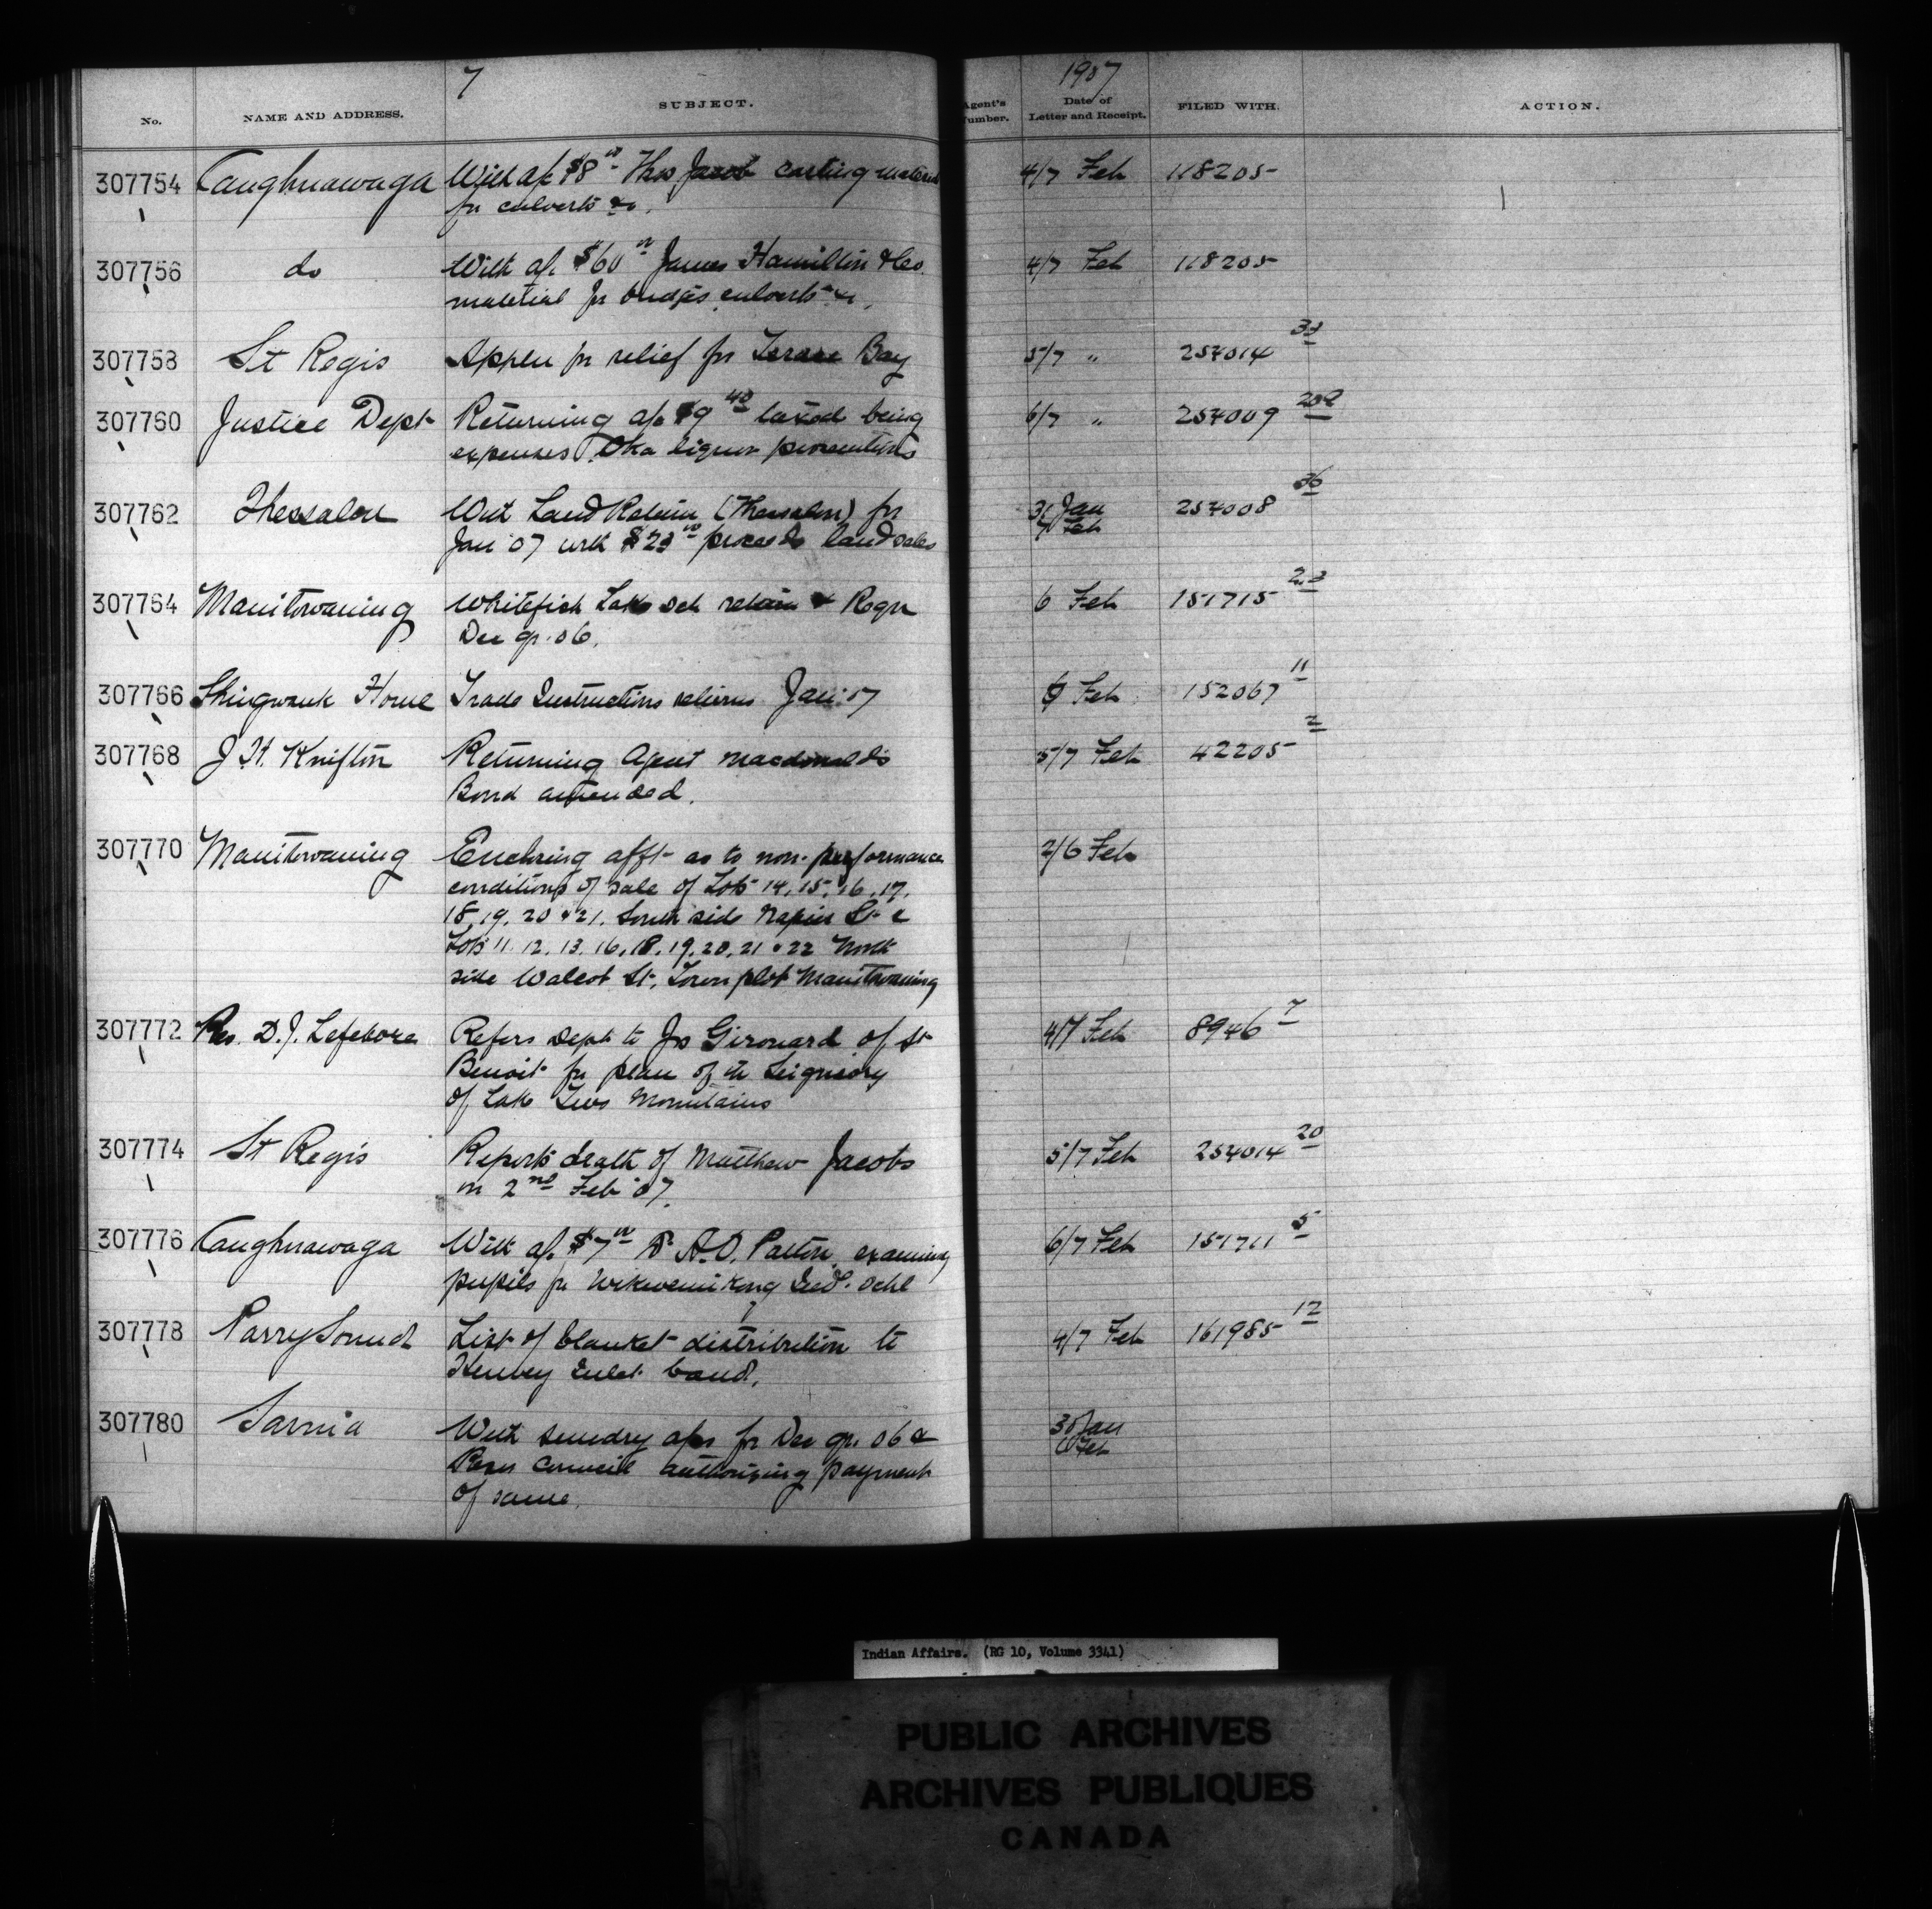 7
1907
No. NAME AND ADDRESS. SUBJECT. Agent's Number. Date of Letter and Receipt. FILED WITH. ACTION.
307754 Caughnawaga With a/c $8 00 Thos Jacob carting material 4/7 Feb 118205
for culverts &c.
307756 do With a/c $60 00 James Hamilton & Co. 4/7 Feb 118205
material for bridges, culverts &c.
307758 St Regis Appln for relief for Bay 5/7 " 254014 33
307760 Justice Dept Returning a/c $9 40 taxed being 6/7 " 254009 202
expenses Oka liquor prosecutions
307762 Thessalon With Land Return (Thessalon) for 31 Jan 254008 36
Jan '07 with $23 00 proceeds land sales 7 Feb
307764 Manitowaning Whitefish Lake sch return & Reqn 6 Feb 151715 23
Dec qr. 06.
307766 Shingwauk Home Trade Instructions returns Jan '07 Feb 152067 11
307768 J. H. Knifton Returning Agent Macdonald's 5/7 Feb 42205 2
Bond amended.
307770 Manitowaning Enclosing afft as to non-performance 2/6 Feb
conditions of sale of Lots 14, 15, 16, 17,
18, 19, 20 & 21, South side Napier St &
Lots 11. 12. 13. 16, 18, 19, 20, 21 & 22 North
side Walcot St, Town plot Manitowaning
307772 Rev. D. J. Lefebvre Refers Dept to Jos Girouard of St 4/7 Feb 8946 7
Benoit for plan of the Seigniory
of Lake Two Mountains
307774 St Regis Reports death of Matthew Jacobs 5/7 Feb 254014 20
on 2nd Feb '07.
307776 Caughnawaga With a/c $7 00 Dr A.O. Patton, examining 6/7 Feb 151711 5
pupils for Wikwemikong Ind'l. Schl
307778 Parry Sound List of blanket distribution to 4/7 Feb 161985 12
Henvey Inlet band.
307780 Sarnia With sundry a/cs for Dec qr. 06 & 30 Jan
Resn Council authorizing payment Feb
of same.
Indian Affairs. (RG 10, Volume 3341)
PUBLIC ARCHIVES
ARCHIVES PUBLIQUES
CANADA